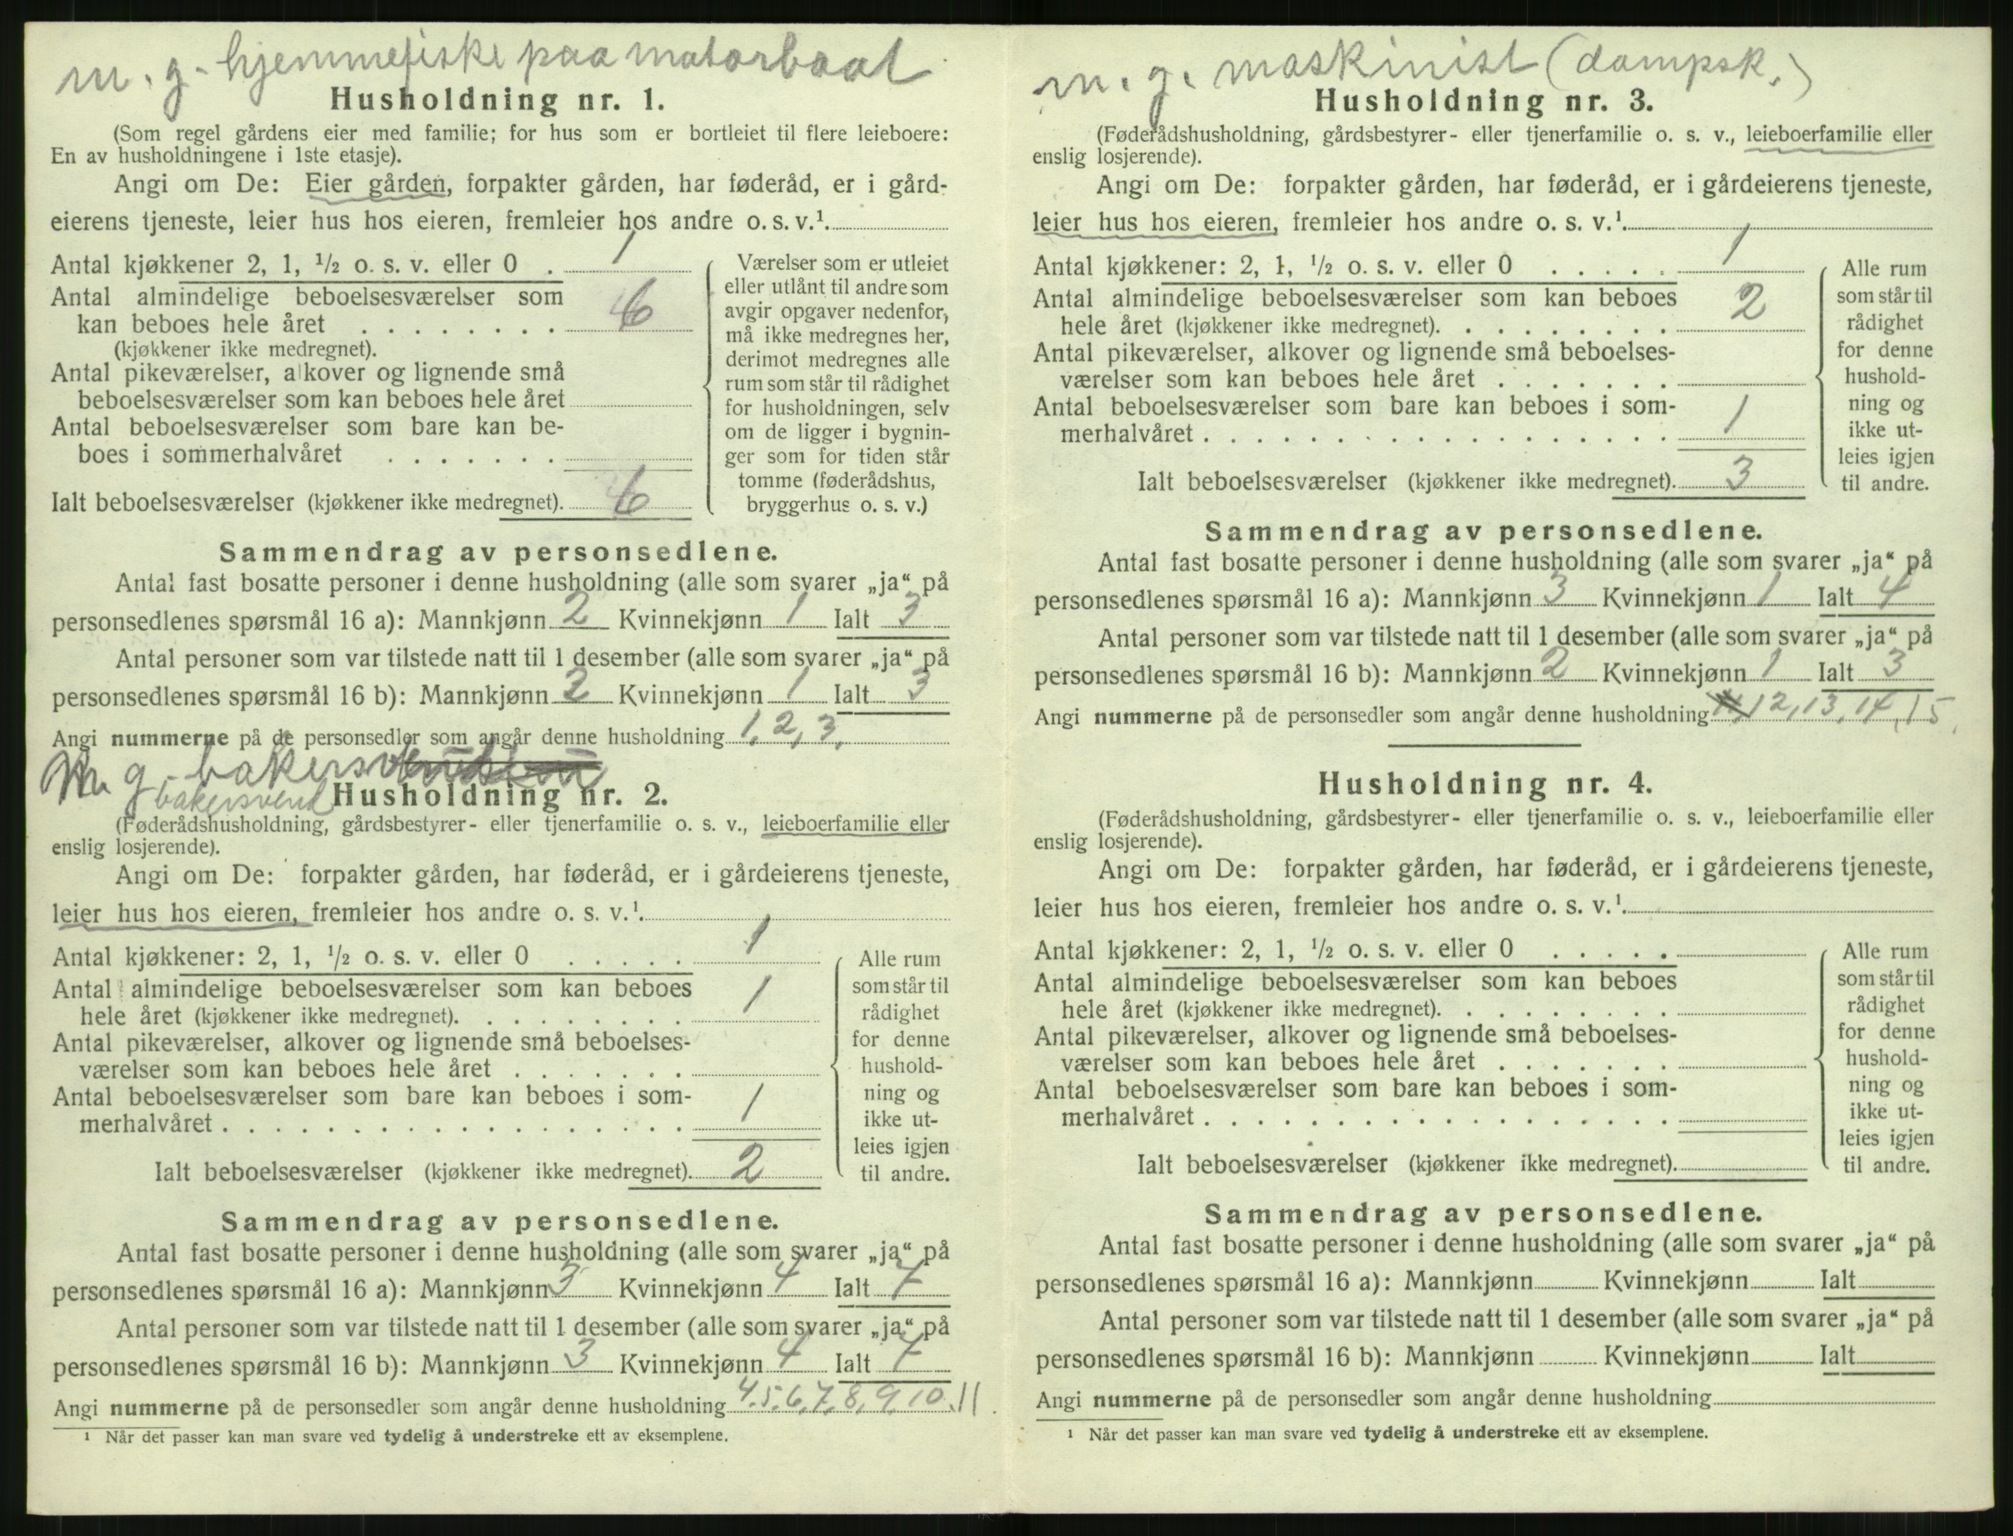 m. g. hjemmefiske paa motorbaat
Husholdning nr. 1.
(Som regel gårdens eier med familie; for hus som er bortleiet til flere leieboere:
En av husholdningene i 1ste etasje).
Angi om De: Eier gården, forpakter gården, har føderåd, er i gård-
eierens tjeneste, leier hus hos eieren, fremleier hos andre o. s. v.¹
Antal kjøkkener 2, 1, ½ o. s. v. eller 0 . 1
Antal almindelige beboelsesværelser som
kan beboes hele året . . . . . . . . 6
(kjøkkener ikke medregnet).
Antal pikeværelser, alkover og lignende små
beboelsesværelser som kan beboes hele året
Antal beboelsesværelser som bare kan be-
boes i sommerhalvåret . . . . . . .
Ialt beboelsesværelser (kjøkkener ikke medregnet). 6
Værelser som er utleiet
eller utlånt til andre som
avgir opgaver nedenfor,
må ikke medregnes her,
derimot medregnes alle
rum som står til rådighet
for husholdningen, selv
om de ligger i bygnin-
ger som for tiden står
tomme (føderådshus,
bryggerhus o. s. v.)
Sammendrag av personsedlene.
Antal fast bosatte personer i denne husholdning (alle som svarer „ja“ på
personsedlenes spørsmål 16 a): Mannkjønn 2 Kvinnekjønn 1 Ialt 3
Antal personer som var tilstede natt til 1 desember (alle som svarer „ja“ på
personsedlenes spørsmål 16 b): Mannkjønn 2 Kvinnekjønn 1 Ialt 3
Angi nummerne på de personsedler som angår denne husholdning 1, 2, 3,
m. g.
bakersvend
Husholdning nr. 2.
(Føderådshusholdning, gårdsbestyrer- eller tjenerfamilie o. s. v., leieboerfamilie eller
enslig losjerende).
Angi om De: forpakter gården, har føderåd, er i gårdeierens tjeneste,
leier hus hos eieren, fremleier hos andre o. s. v.¹
Antal kjøkkener: 2, 1, ½ o. s. v. eller 0 . . . . . 1
Antal almindelige beboelsesværelser som kan beboes
hele året (kjøkkener ikke medregnet). . . . . . . . 1
Antal pikeværelser, alkover og lignende små beboelses-
værelser som kan beboes hele året . . . . . . .
Antal beboelsesværelser som bare kan beboes i som-
merhalvåret . . . . . . . . . . . . . . . . . . 1
Ialt beboelsesværelser (kjøkkener ikke medregnet). 2
Alle rum
som står til
rådighet
for denne
hushold-
ning og
ikke ut-
leies igjen
til andre.
Sammendrag av personsedlene.
Antal fast bosatte personer i denne husholdning (alle som svarer „ja“ på
personsedlenes spørsmål 16 a): Mannkjønn 3 Kvinnekjønn 4 Ialt 7
Antal personer som var tilstede natt til 1 desember (alle som svarer „ja“ på
personsedlenes spørsmål 16 b): Mannkjønn 3 Kvinnekjønn 4 Ialt 7
Angi nummerne på de personsedler som angår denne husholdning 4, 5, 6, 7, 8, 9, 10, 11
¹ Når det passer kan man svare ved tydelig å understreke ett av eksemplene.
m. g. maskinist (dampsk.)
Husholdning nr. 3.
(Føderådshusholdning, gårdsbestyrer- eller tjenerfamilie o. s. v., leieboerfamilie eller
enslig losjerende).
Angi om De: forpakter gården, har føderåd, er i gårdeierens tjeneste,
leier hus hos eieren, fremleier hos andre o. s. v.¹
Antal kjøkkener: 2, 1, ½ o. s. v. eller 0 . . . . . 1
Antal almindelige beboelsesværelser som kan beboes
hele året (kjøkkener ikke medregnet). . . . . . . . 2
Antal pikeværelser, alkover og lignende små beboelses-
værelser som kan beboes hele året . . . . . . .
Antal beboelsesværelser som bare kan beboes i som-
merhalvåret . . . . . . . . . . . . . . . . . . 1
Ialt beboelsesværelser (kjøkkener ikke medregnet). 3
Alle rum
som står til
rådighet
for denne
hushold-
ning og
ikke ut-
leies igjen
til andre.
Sammendrag av personsedlene.
Antal fast bosatte personer i denne husholdning (alle som svarer „ja“ på
personsedlenes spørsmål 16 a): Mannkjønn 3 Kvinnekjønn 1 Ialt 4
Antal personer som var tilstede natt til 1 desember (alle som svarer „ja“ på
personsedlenes spørsmål 16 b): Mannkjønn 2 Kvinnekjønn 1 Ialt 3
Angi nummerne på de personsedler som angår denne husholdning 12, 13, 14, 15
Husholdning nr. 4.
(Føderådshusholdning, gårdsbestyrer- eller tjenerfamilie o. s. v., leieboerfamilie eller
enslig losjerende).
Angi om De: forpakter gården, har føderåd, er i gårdeierens tjeneste,
leier hus hos eieren, fremleier hos andre o. s. v.¹
Antal kjøkkener: 2, 1, ½ o. s. v. eller 0 . . . . .
Antal almindelige beboelsesværelser som kan beboes
hele året (kjøkkener ikke medregnet). . . . . . . .
Antal pikeværelser, alkover og lignende små beboelses-
værelser som kan beboes hele året . . . . . . .
Antal beboelsesværelser som bare kan beboes i som-
merhalvåret . . . . . . . . . . . . . . . . . .
Ialt beboelsesværelser (kjøkkener ikke medregnet).
Alle rum
som står til
rådighet
for denne
hushold-
ning og
ikke ut-
leies igjen
til andre.
Sammendrag av personsedlene.
Antal fast bosatte personer i denne husholdning (alle som svarer „ja“ på
personsedlenes spørsmål 16 a): Mannkjønn Kvinnekjønn Ialt
Antal personer som var tilstede natt til 1 desember (alle som svarer „ja“ på
personsedlenes spørsmål 16 b): Mannkjønn Kvinnekjønn Ialt
Angi nummerne på de personsedler som angår denne husholdning
¹ Når det passer kan man svare ved tydelig å understreke ett av eksemplene.